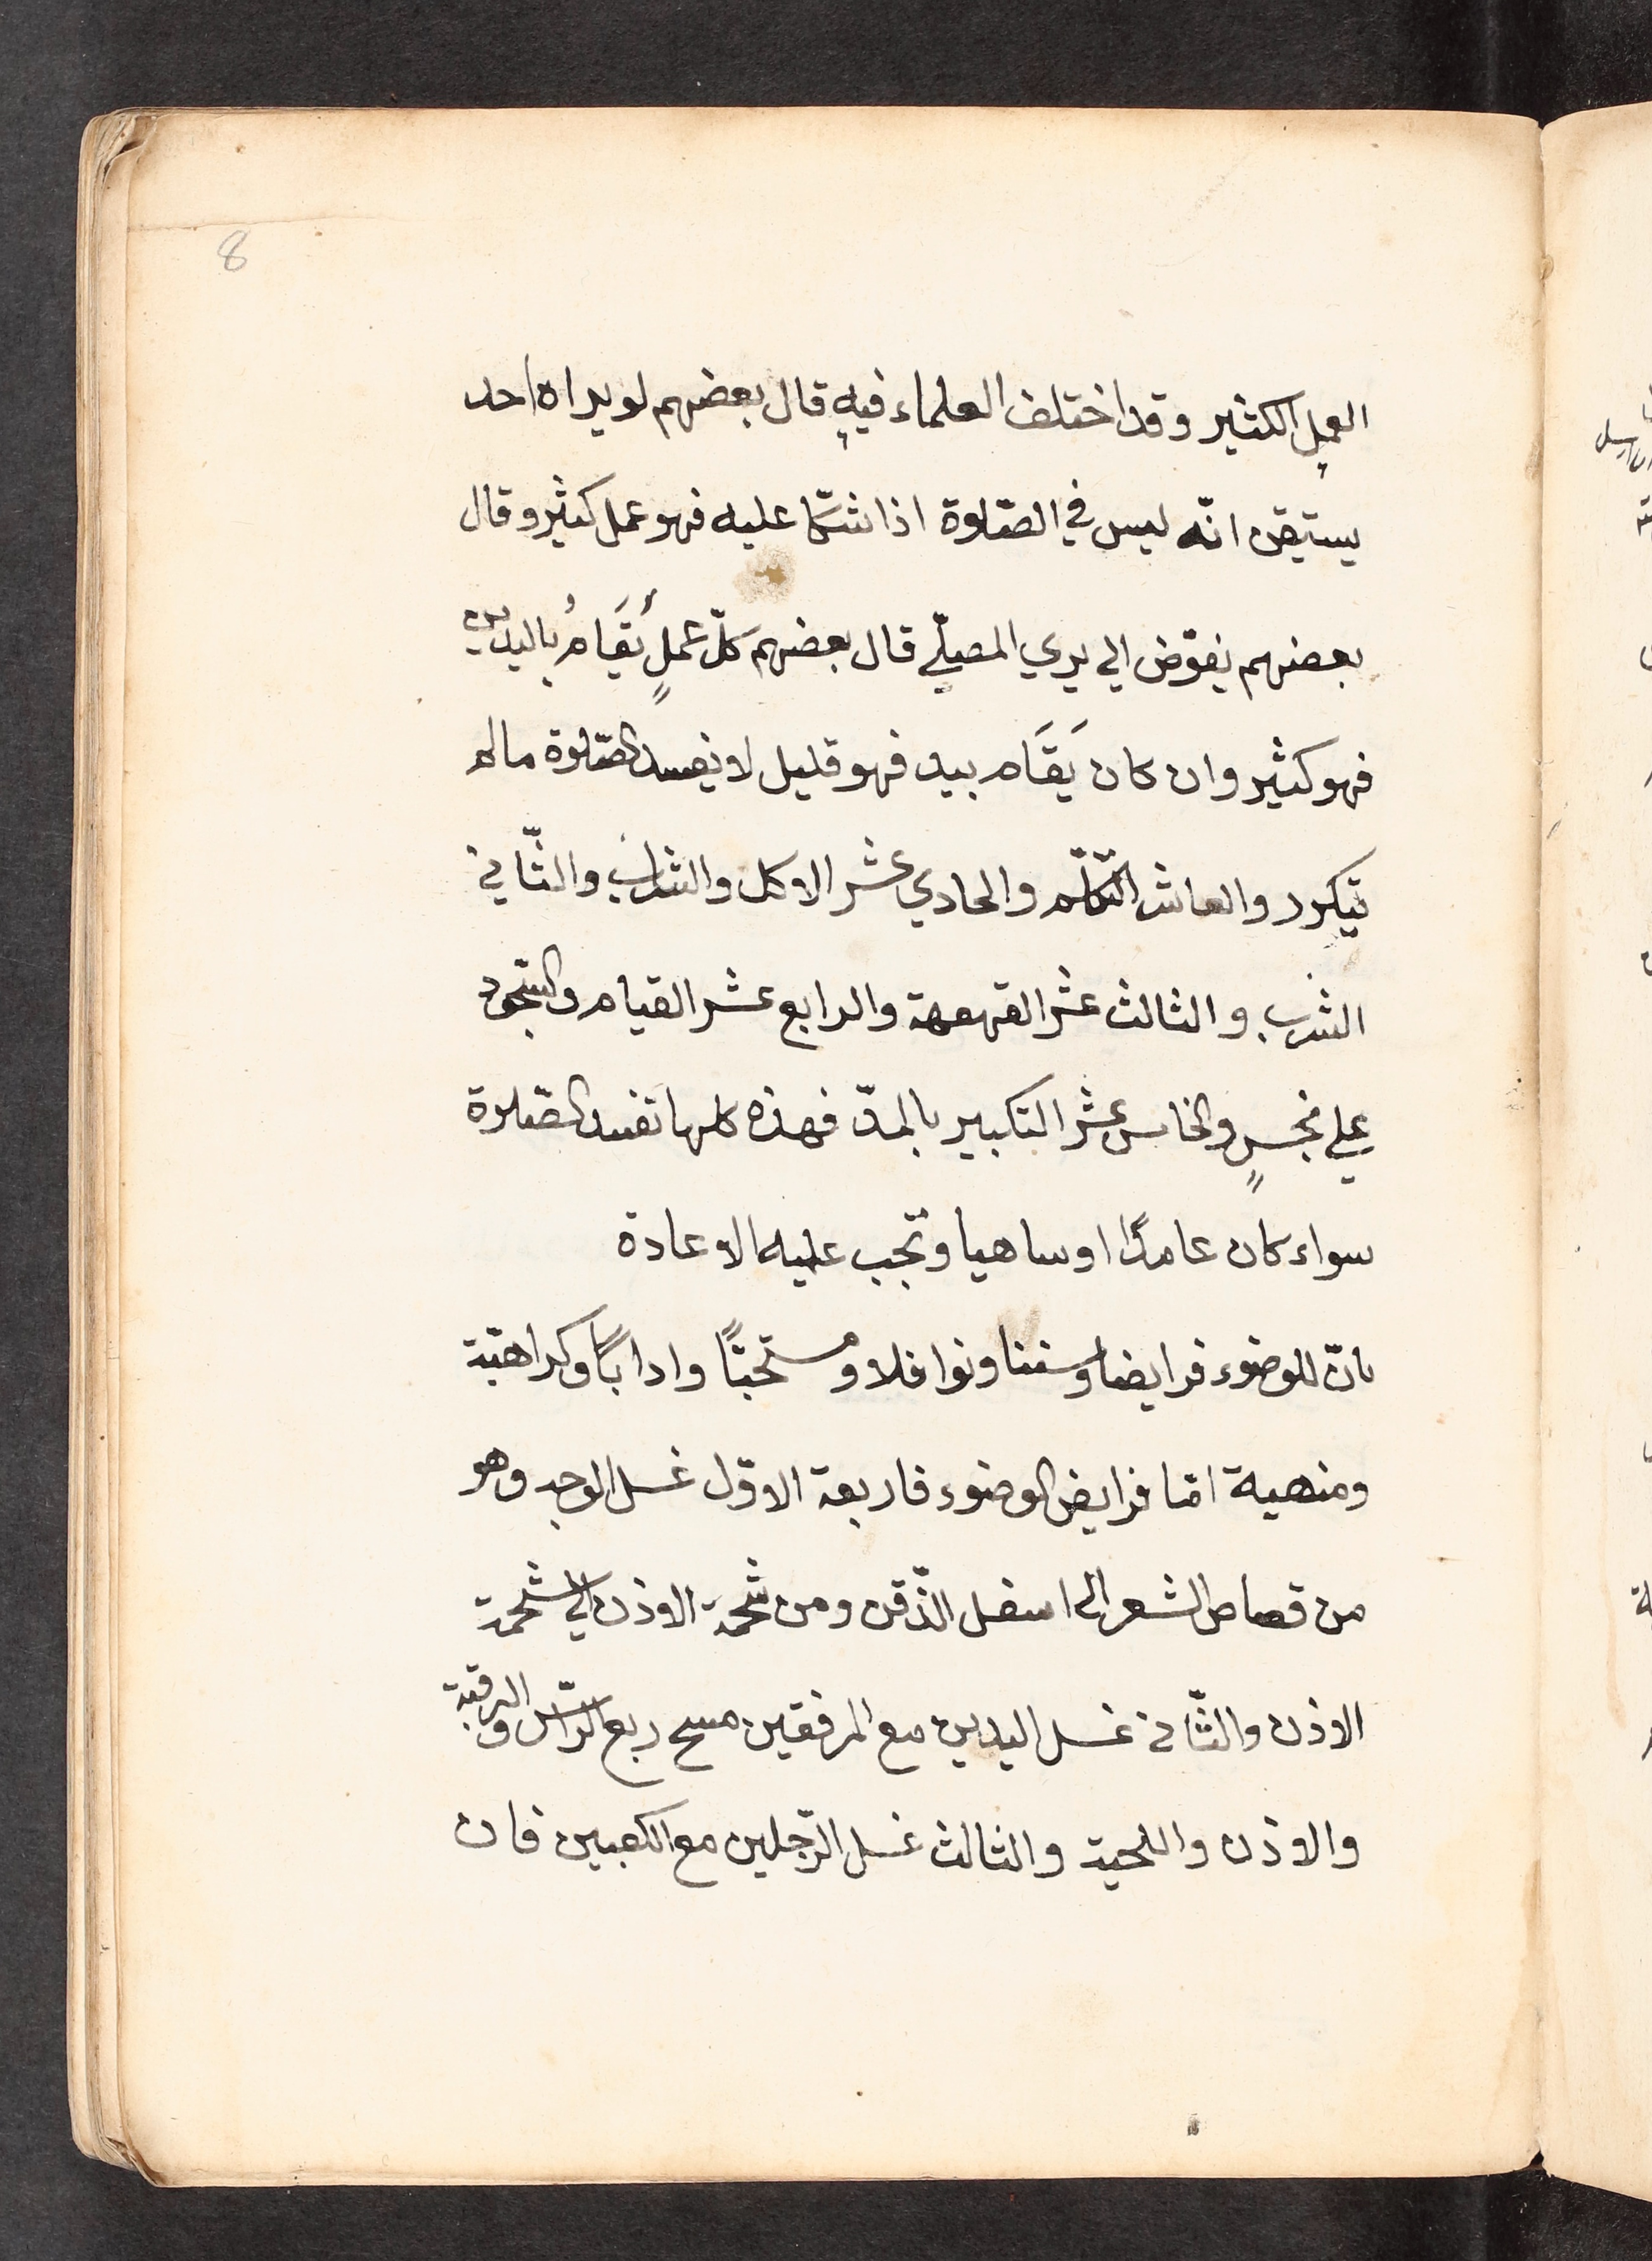 8
العملِ الكثير وقد اختلف العلماء فيهِ قال بعضهم لو يراه احد
يستيقن انّه ليس في الصّلوة اذا عليه فهو عمل كثير وقال
بعضهم يفوّض الي يري المصلّي قال بعضهم كلّ عملٍ يُقَامُ باليدين
فهو كثير وان كان يَقَام بيد فهو قليل لا يفسد الصّلوة مالم
يتكرر والعاشر التّكلّم والحادي عشر الاكل والشراب والثّاني
الشرب والثالث عشر القهقهة والرابع عشر القيام والسّجود
علي نجسٍ والخامس عشر التكبير بالمدّ فهذه كلها تفسد الصّلاة
سواء كان عامدًا او ساهيا وتجب عليه الاعادة
بانّ للوضوء فرايضا وسننا ونوافلا ومستحبّاً وادابًا وكراهيّة
ومنهية امّا فرايض الوضوء فاربعة الاوّل غسل الوجه وهو
من قصاص الشعر الى اسفل الذّقن ومن شحمة الاذن الي شحمة
الاذن والثّاني غسل اليدين مع المرفقين مسح ربع الرّاس والرقبة
والاذن واللحية والثالث غسل الرّجلين مع الكعبين فان